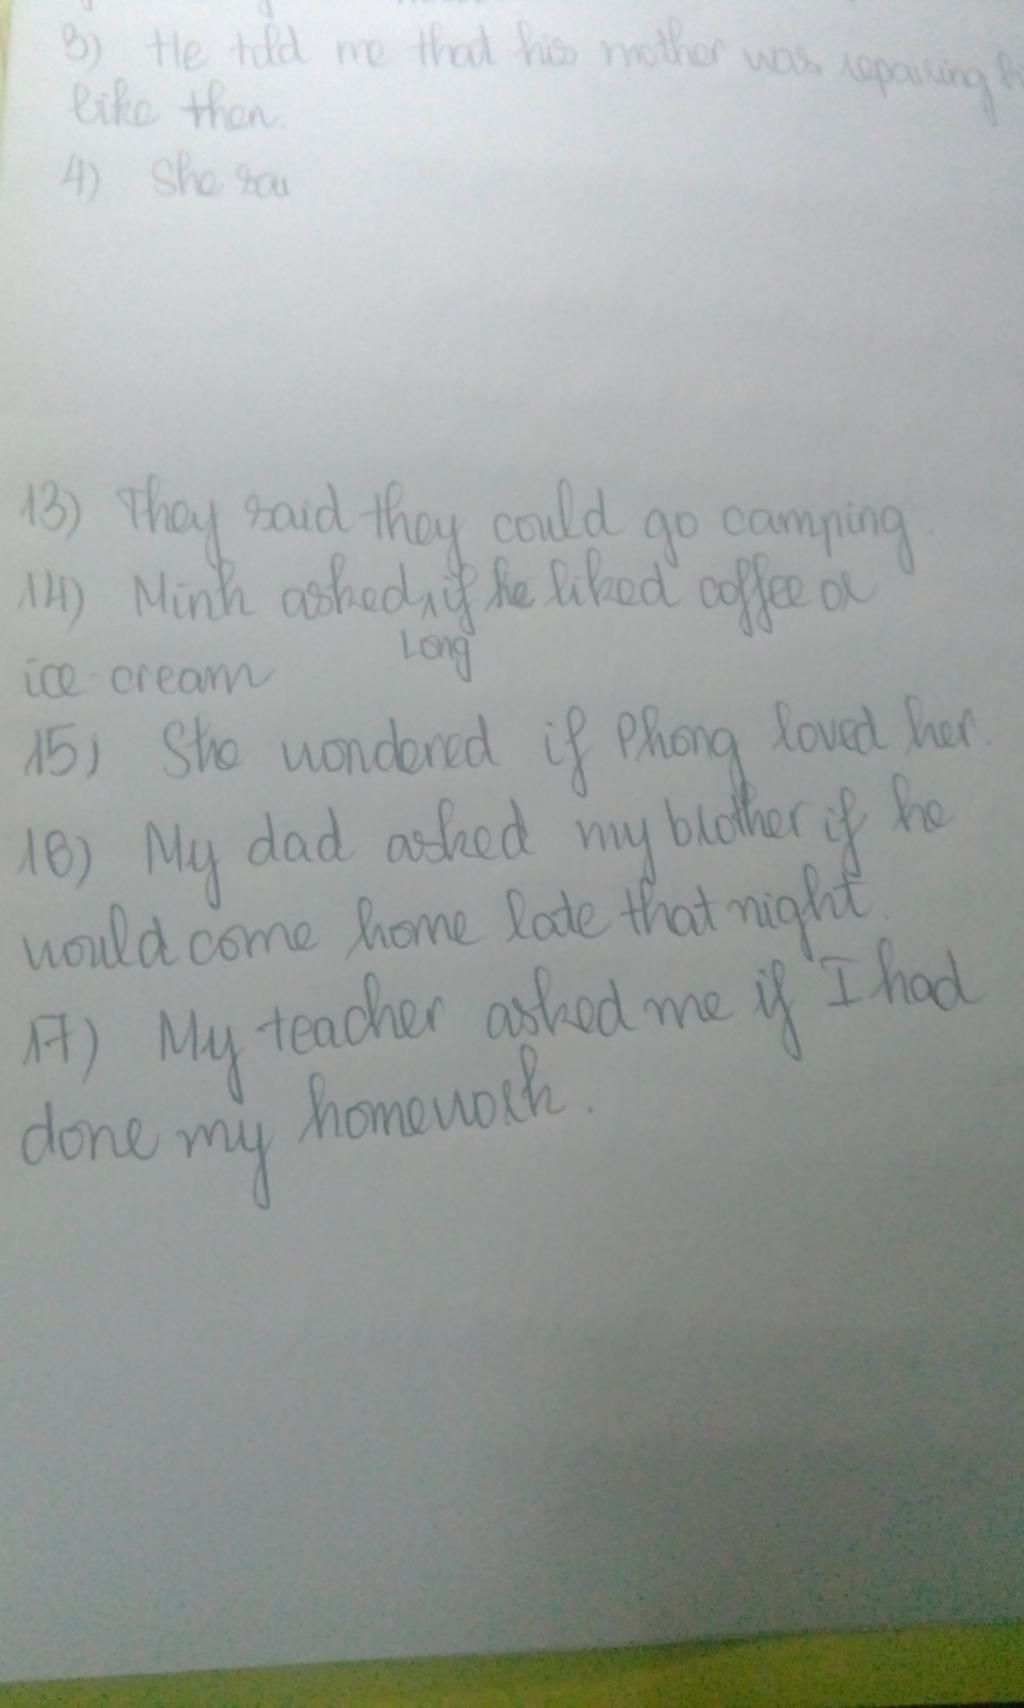 3) He told me that his mother was repairing
like then.
4) She sai
13) They said they could go camping.
14) Minh asked if he liked coffee or
Long
ice cream
15) She wondered if Phong loved her.
16) My dad asked my brother if he
would come home late that night.
17) My teacher asked me if I had
done my homework.